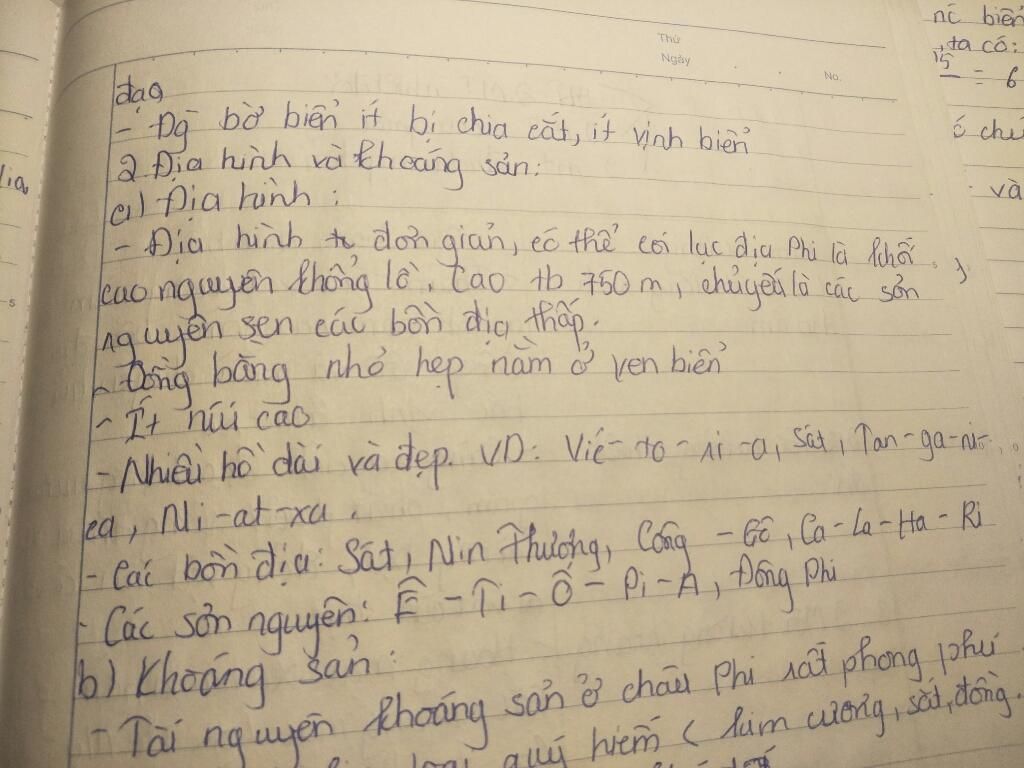 Thứ
Ngày
No.
đạo
- Đg bờ biển ít bị chia cắt, ít vịnh biển
2 Địa hình và khoáng sản:
a) Địa hình :
- Địa hình đơn giản, có thể coi lục địa Phi là khối
cao nguyên khổng lồ, cao tb 750 m, chủ yếu là các sơn
nguyên sen các bồn địa thấp.
- Đồng bằng nhỏ hẹp nằm ở ven biển
- Ít núi cao
- Nhiều hồ dài và đẹp. VD: Vic-to-ri-a, Sát, Tan-ga-ni-
ca, Ni-at-xa.
- Các bồn địa: Sát, Nin Thượng, Công - Gô, Ca-La-Ha-Ri
- Các sơn nguyên: Ê-Ti-Ô-Pi-A, Đông Phi
b) Khoáng sản:
- Tài nguyên khoáng sản ở châu Phi rất phong phú
loại quý hiếm ( kim cương, sắt, đồng.
nc biển
, ta có:
15 = 6
và